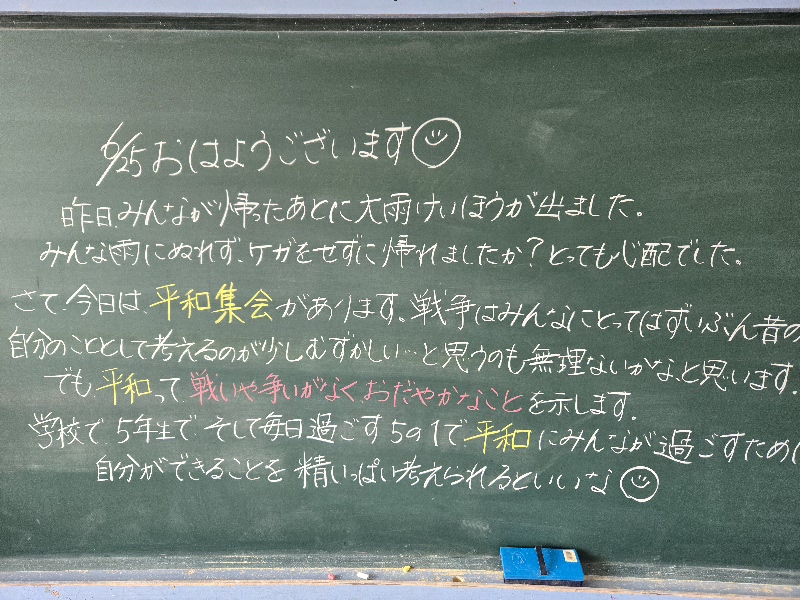 6/25 おはようございます
昨日、みんなが帰ったあとに大雨けいほうが出ました。
みんな雨にぬれず、ケガをせずに帰れましたか？とっても心配でした。
さて、今日は、平和集会があります。戦争はみんなにとってはずいぶん昔の
自分のこととして考えるのが少しむずかしい…と思うのも無理ないかな、と思います。
でも、平和って戦いや争いがなくおだやかなことを示します。
学校で、5年生で、そして毎日過ごす5の1で、平和にみんなが過ごすために
自分ができることを精いっぱい考えられるといいな